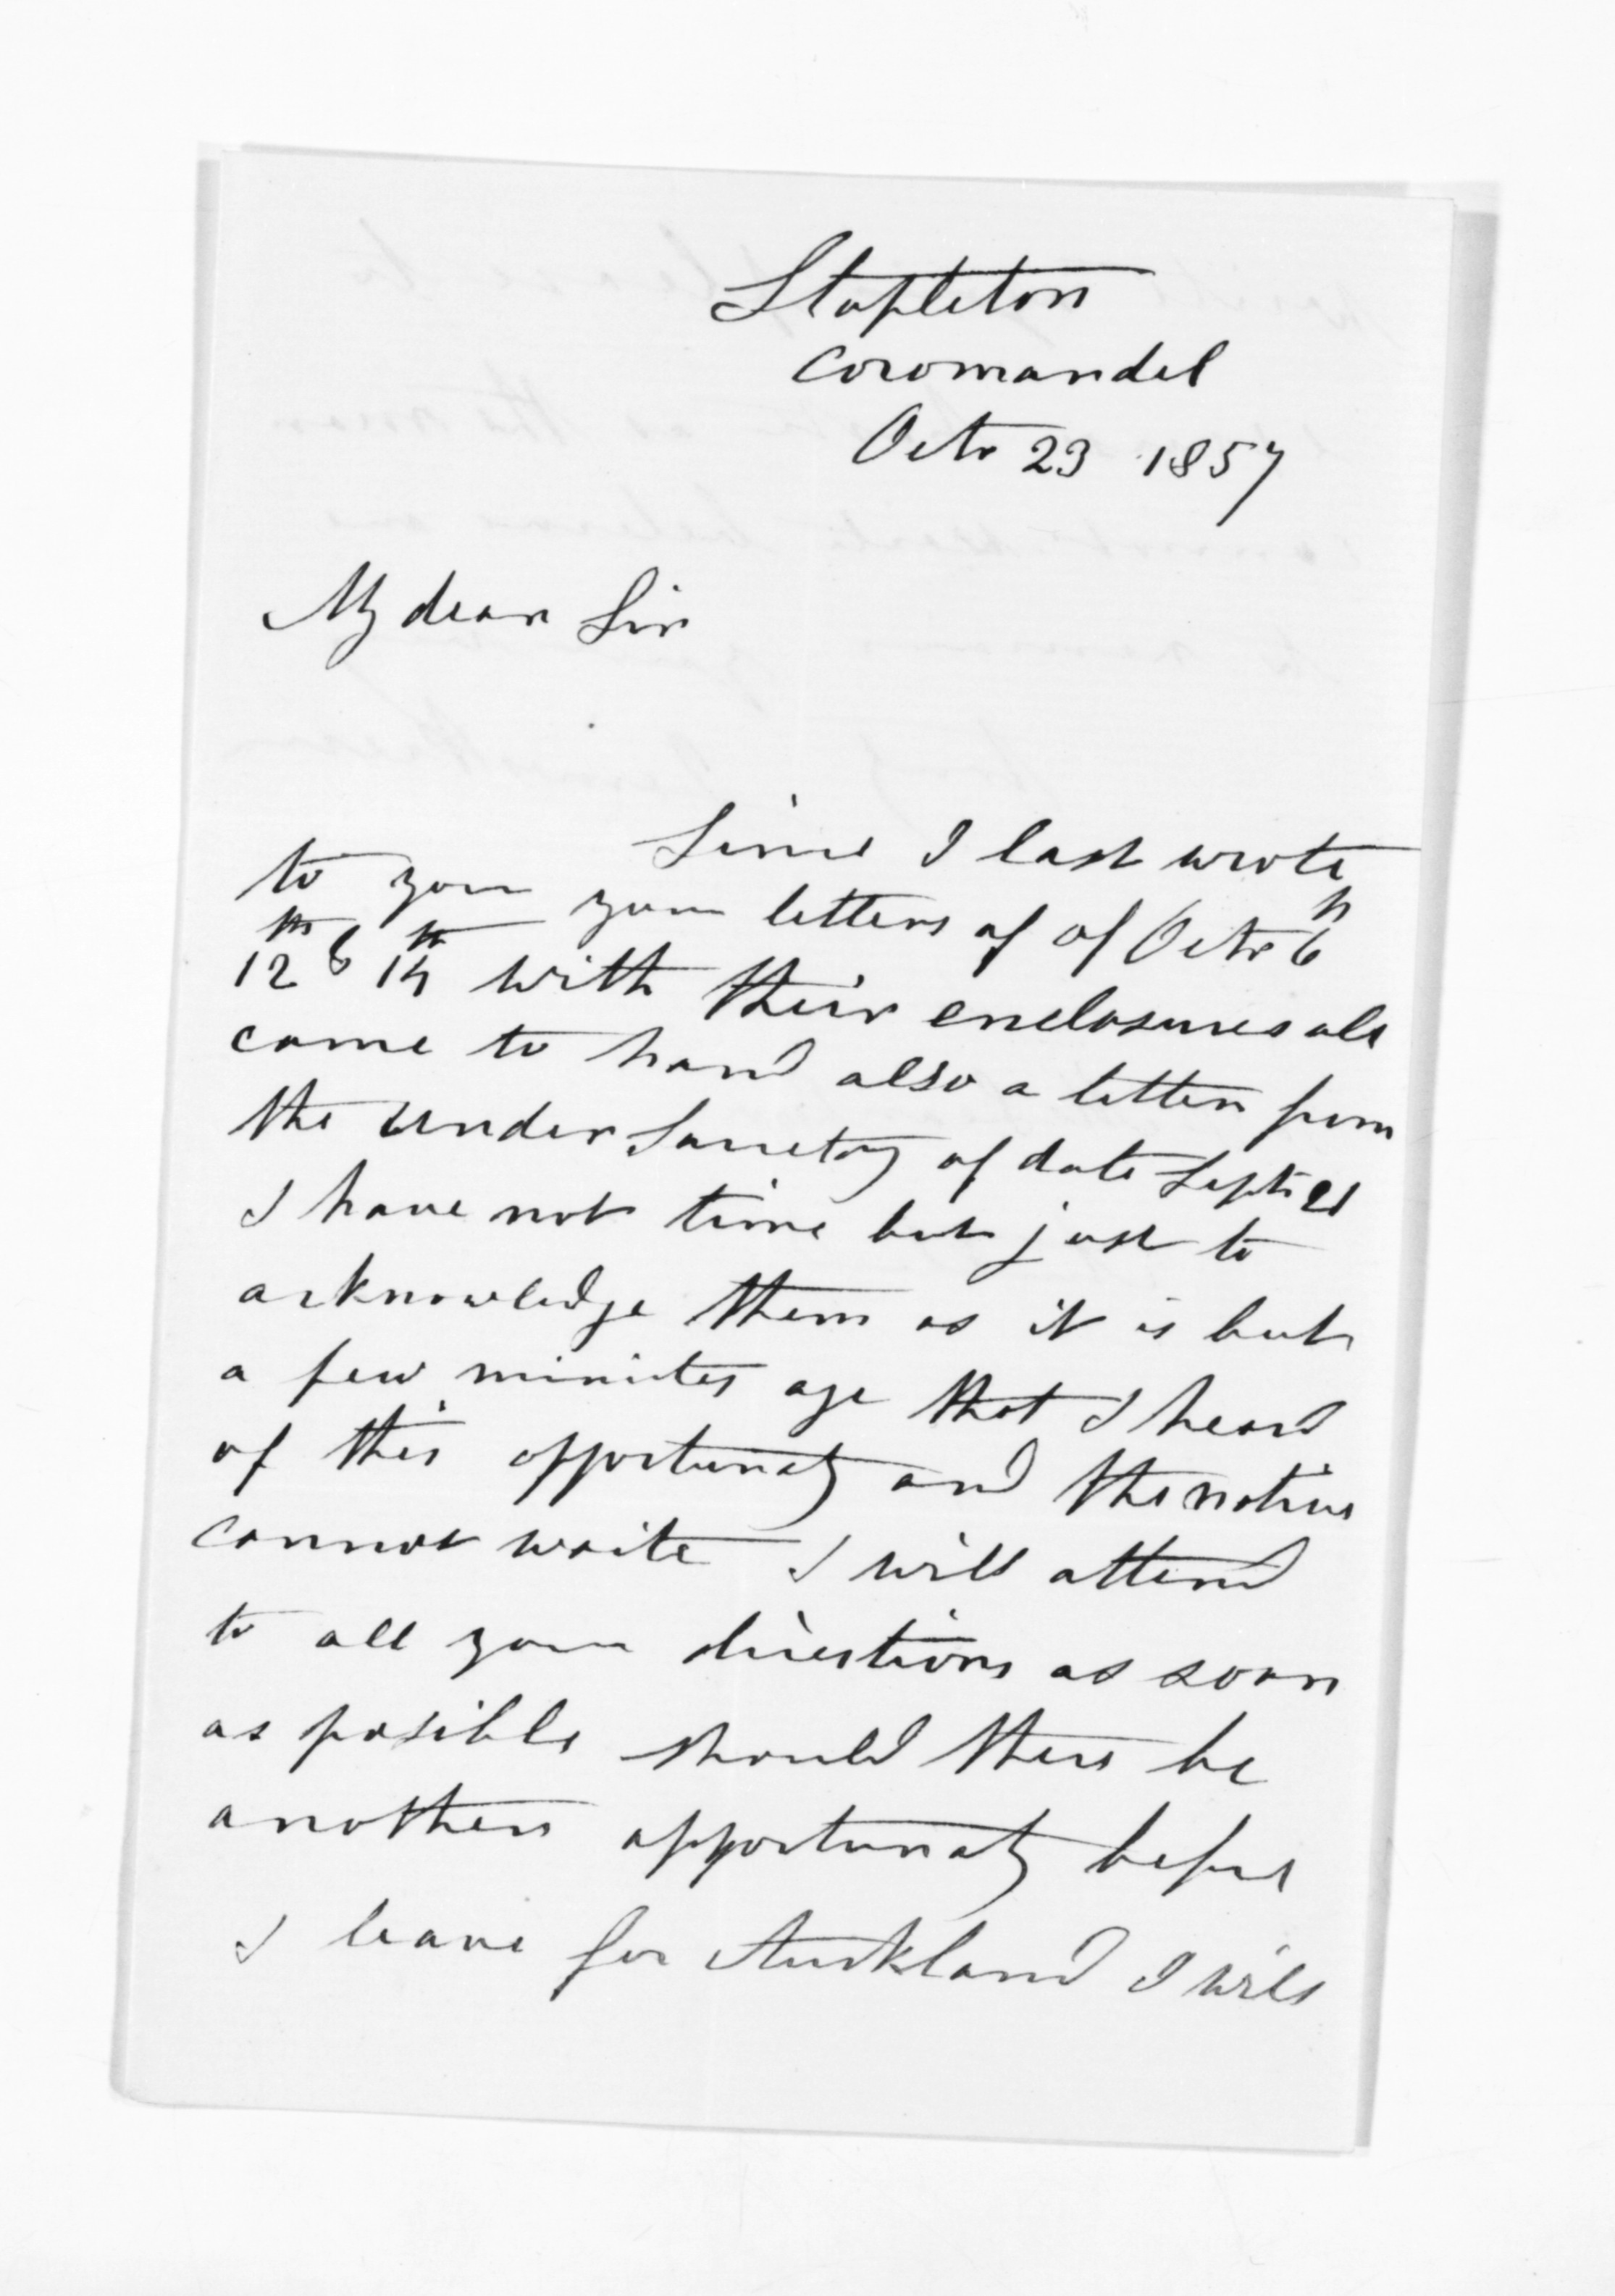 Stapleton
Coromandel
Octr 23 1857
My dear Sir
Since I last wrote
to you your letters of of Octr 6th
12th & 14th with their enclosures all
came to hand also a letter from
the Under Secretary of date Sept 21
I have not time but just to
acknowledge them as it is but
a few minites ago that I heard
of this opportunaty and the native
cannot waite I will attend
to all your directions as soon
as posible should there be
another opportunaty before
I leave for Auckland I will